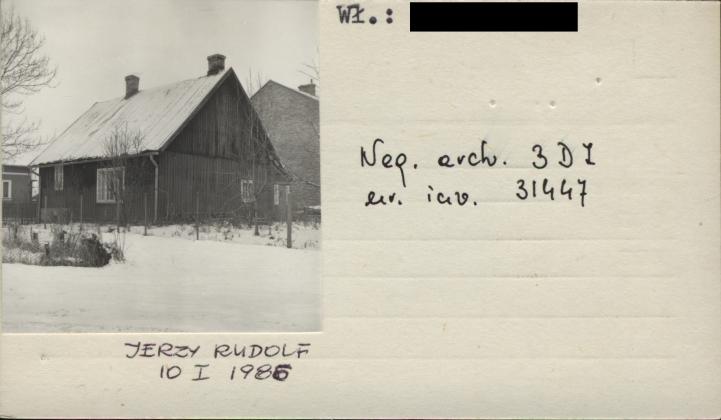 Wł.:
Neg. arch. 3 D I
nr. inv. 31447
JERZY RUDOLF
10 I 1986